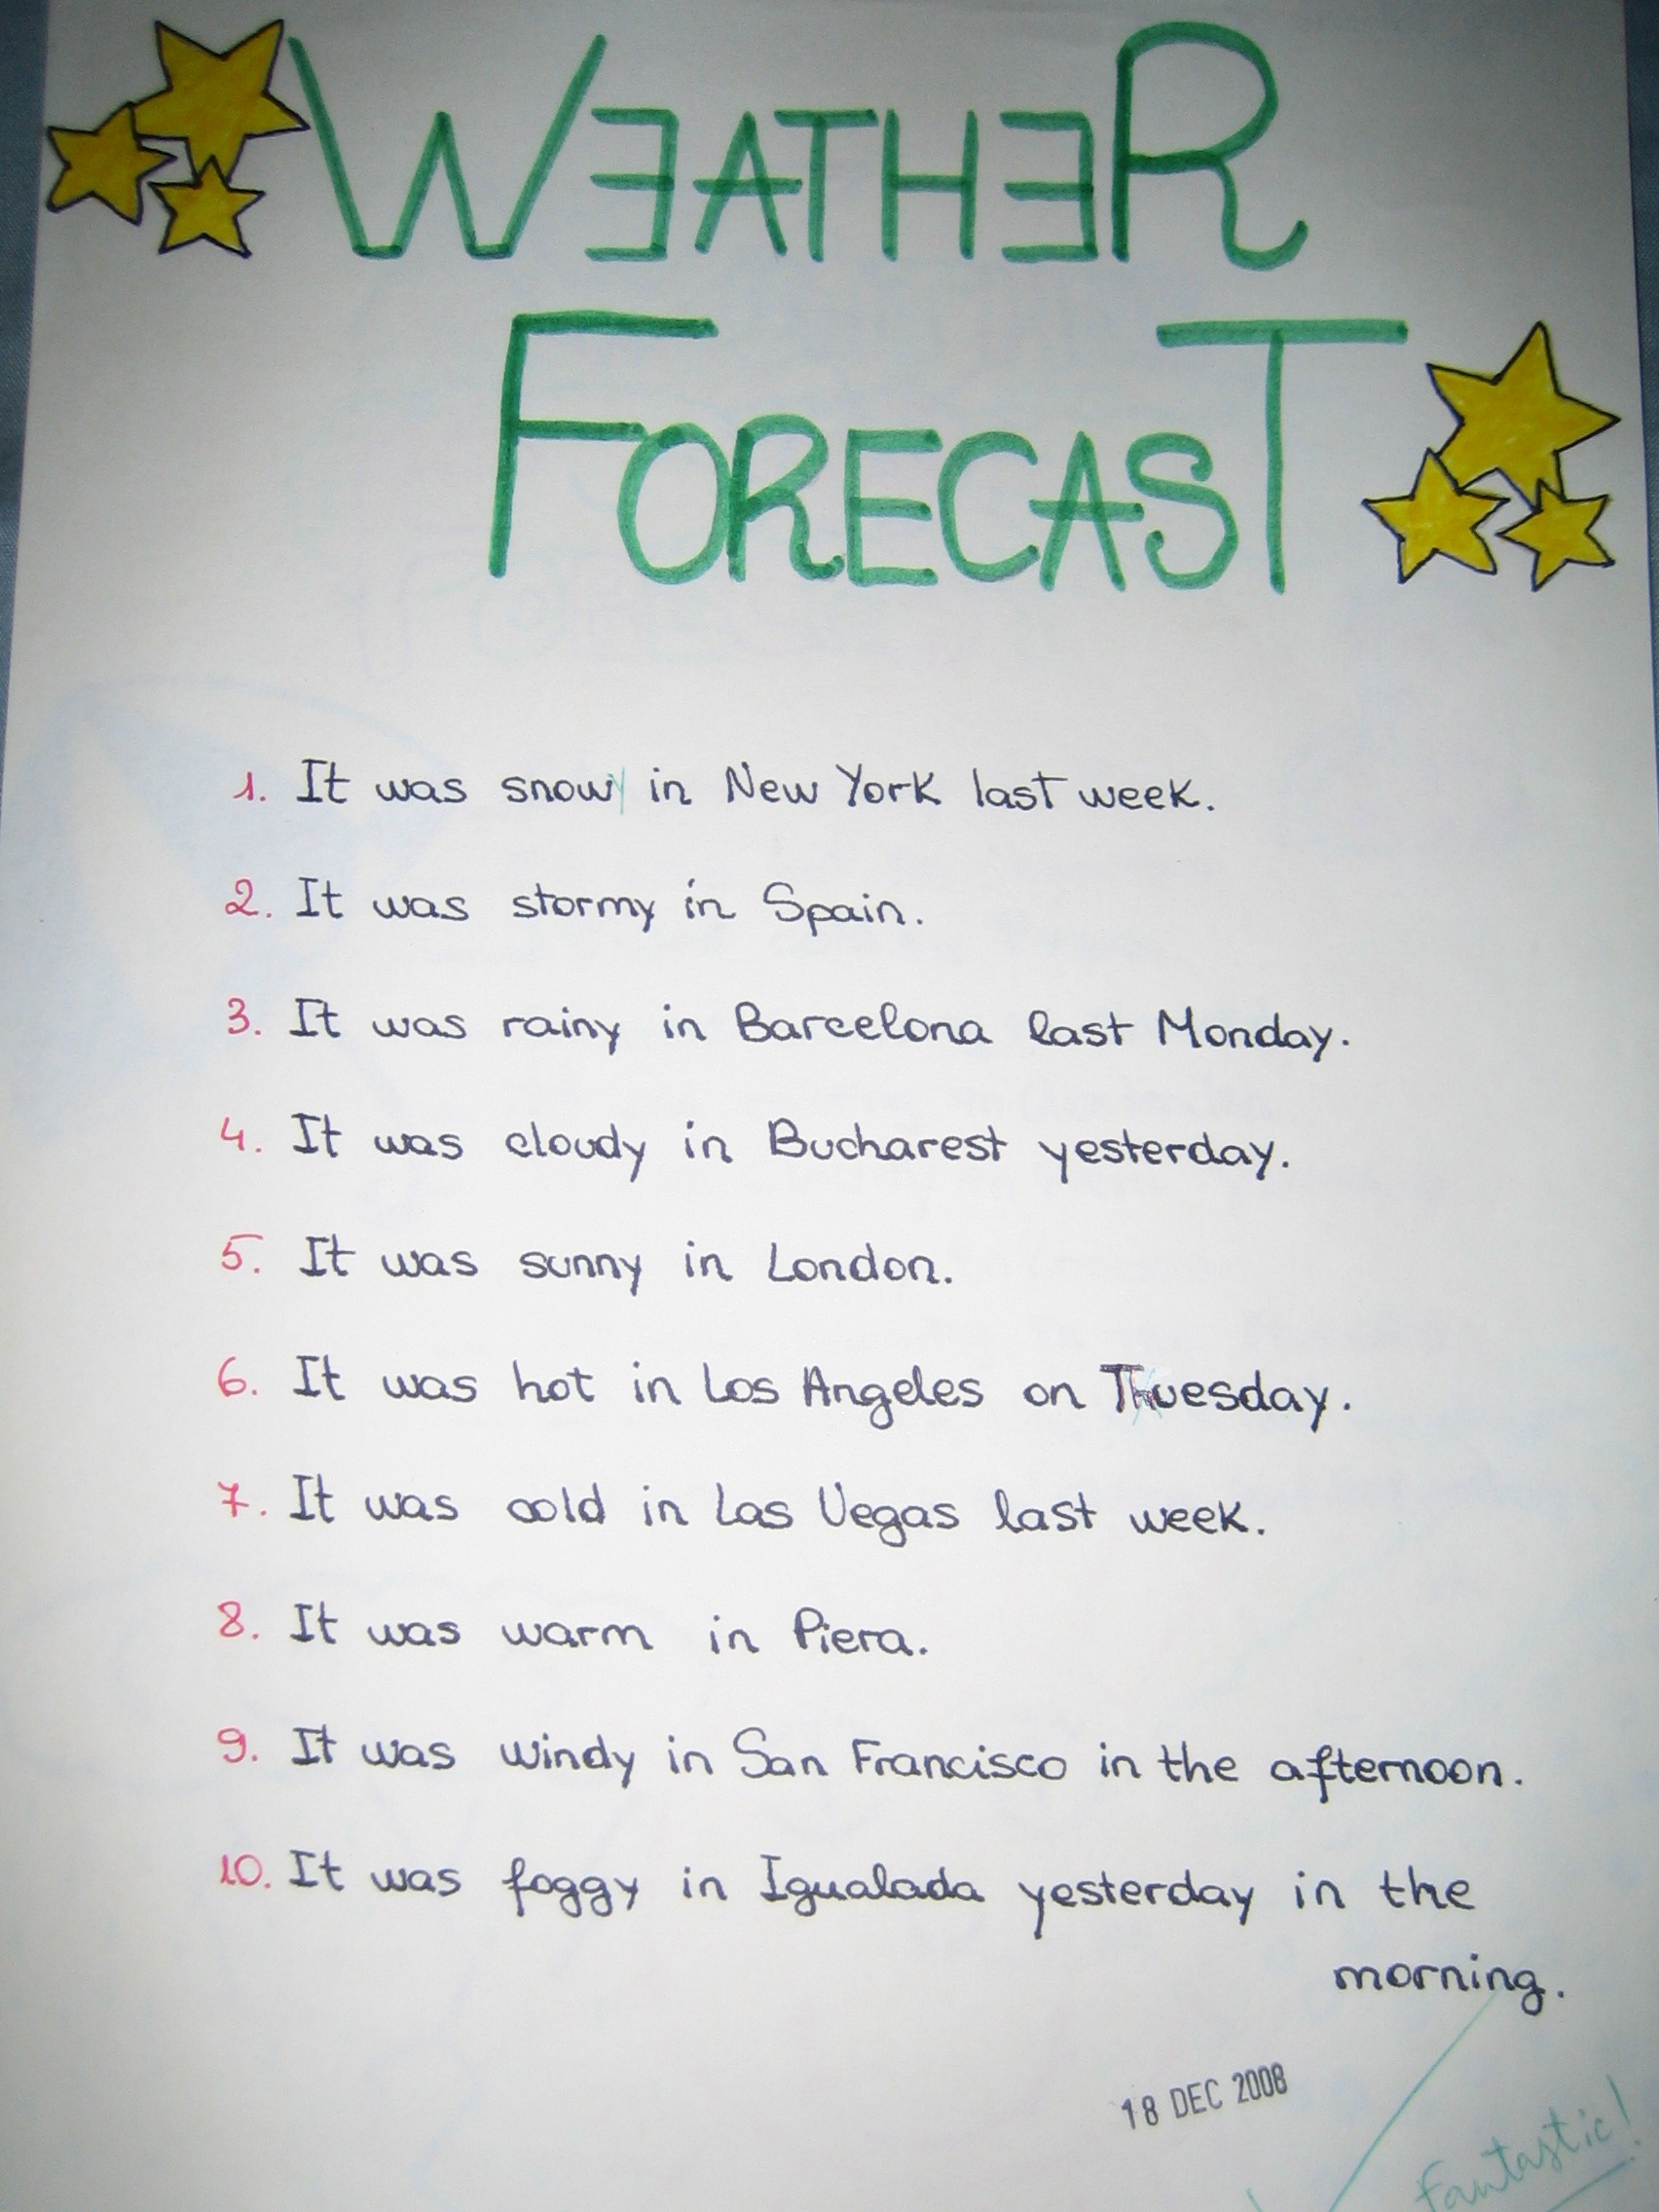 WEATHER
FORECAST
1. It was snowy in New York last week.
2. It was stormy in Spain.
3. It was rainy in Barcelona last Monday.
4. It was cloudy in Bucharest yesterday.
5. It was sunny in London.
6. It was hot in Los Angeles on Thuesday.
7. It was cold in Las Vegas last week.
8. It was warm in Piera.
9. It was windy in San Francisco in the afternoon.
10. It was foggy in Igualada yesterday in the
morning.
18 DEC 2008
Fantastic!